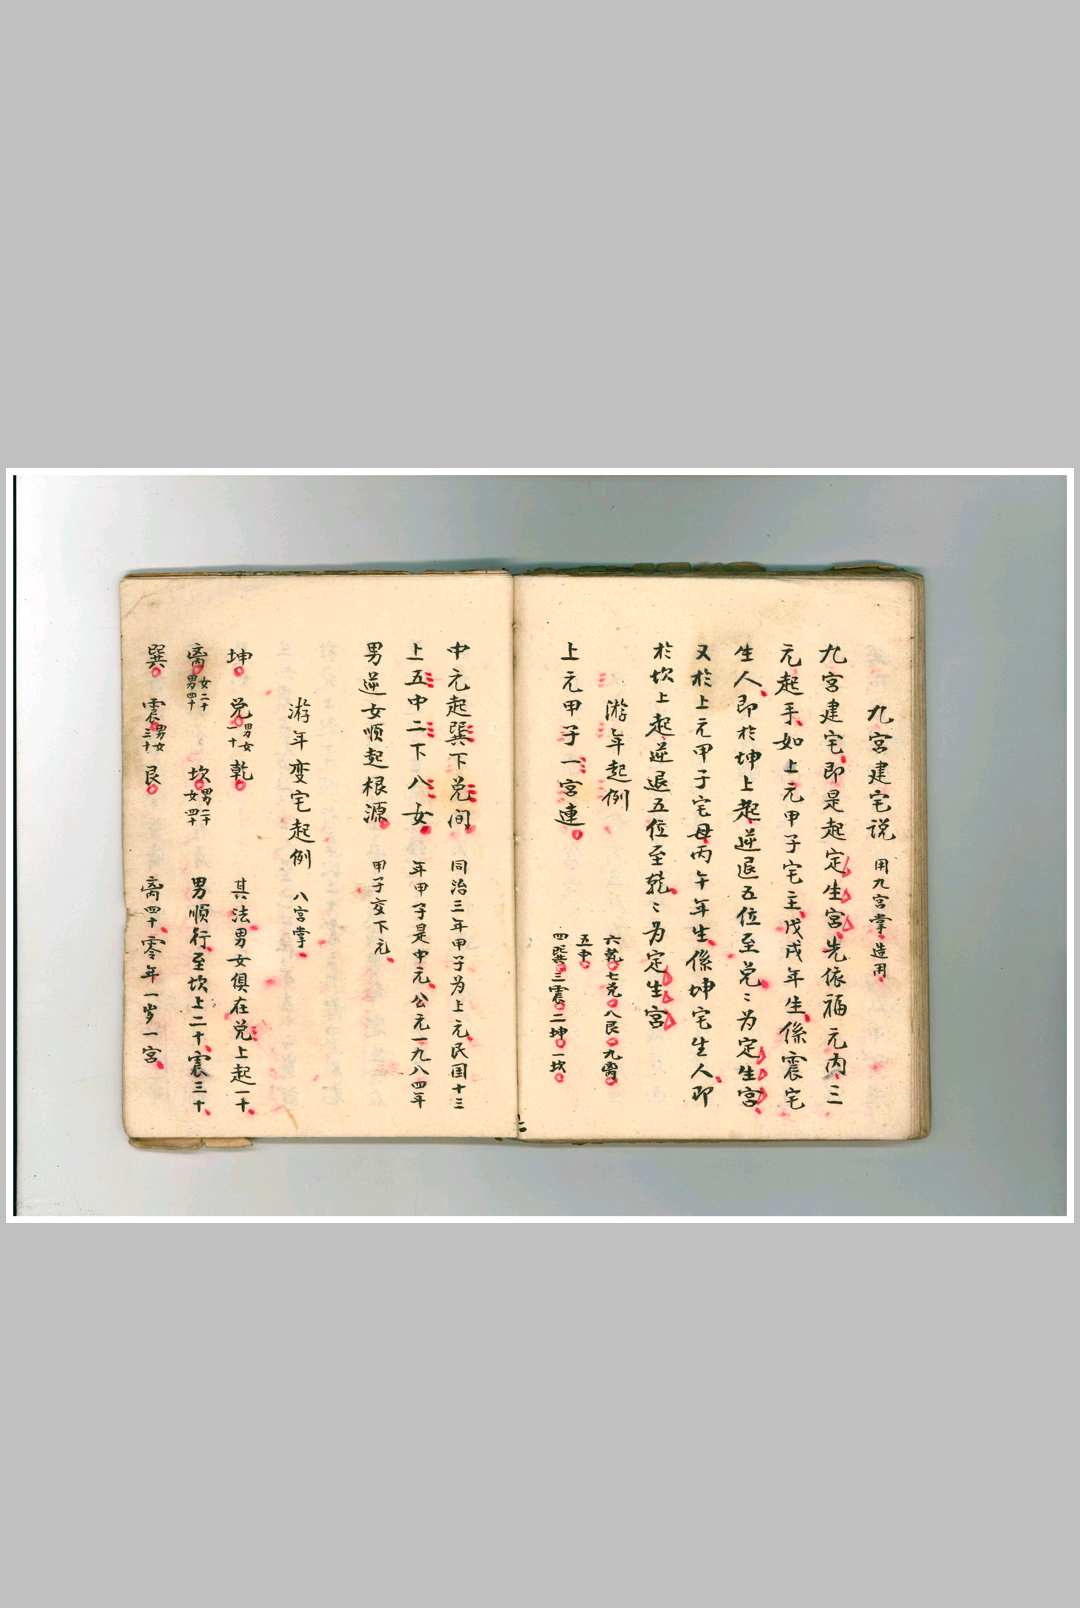 九宫建宅说 用九宫掌造用
九宫建宅即是起定生宫先依福元内三
元起手如上元甲子宅主戊戌年生係震宅
生人即於坤上起逆退五位至兑〻为定生宫
又於上元甲子宅母丙午年生係坤宅生人即
於坎上起逆退五位至乾〻为定生宫
游年起例
六乾七兑八艮九离
五中
四巽三震二坤一坎
上元甲子一宫連
中元起巽下兑间 同治三年甲子为上元民国十三
上五中二下八女 年甲子是中元公元一九八四年
男逆女顺起根源 甲子交下元
游年变宅起例 八宫掌
坤 兑男女一十 乾 其法男女俱在兑上起一十
离女二十男四十 坎男二十女四十 男顺行至坎上二十震三十
巽 震男女三十 艮 离四十零年一岁一宫